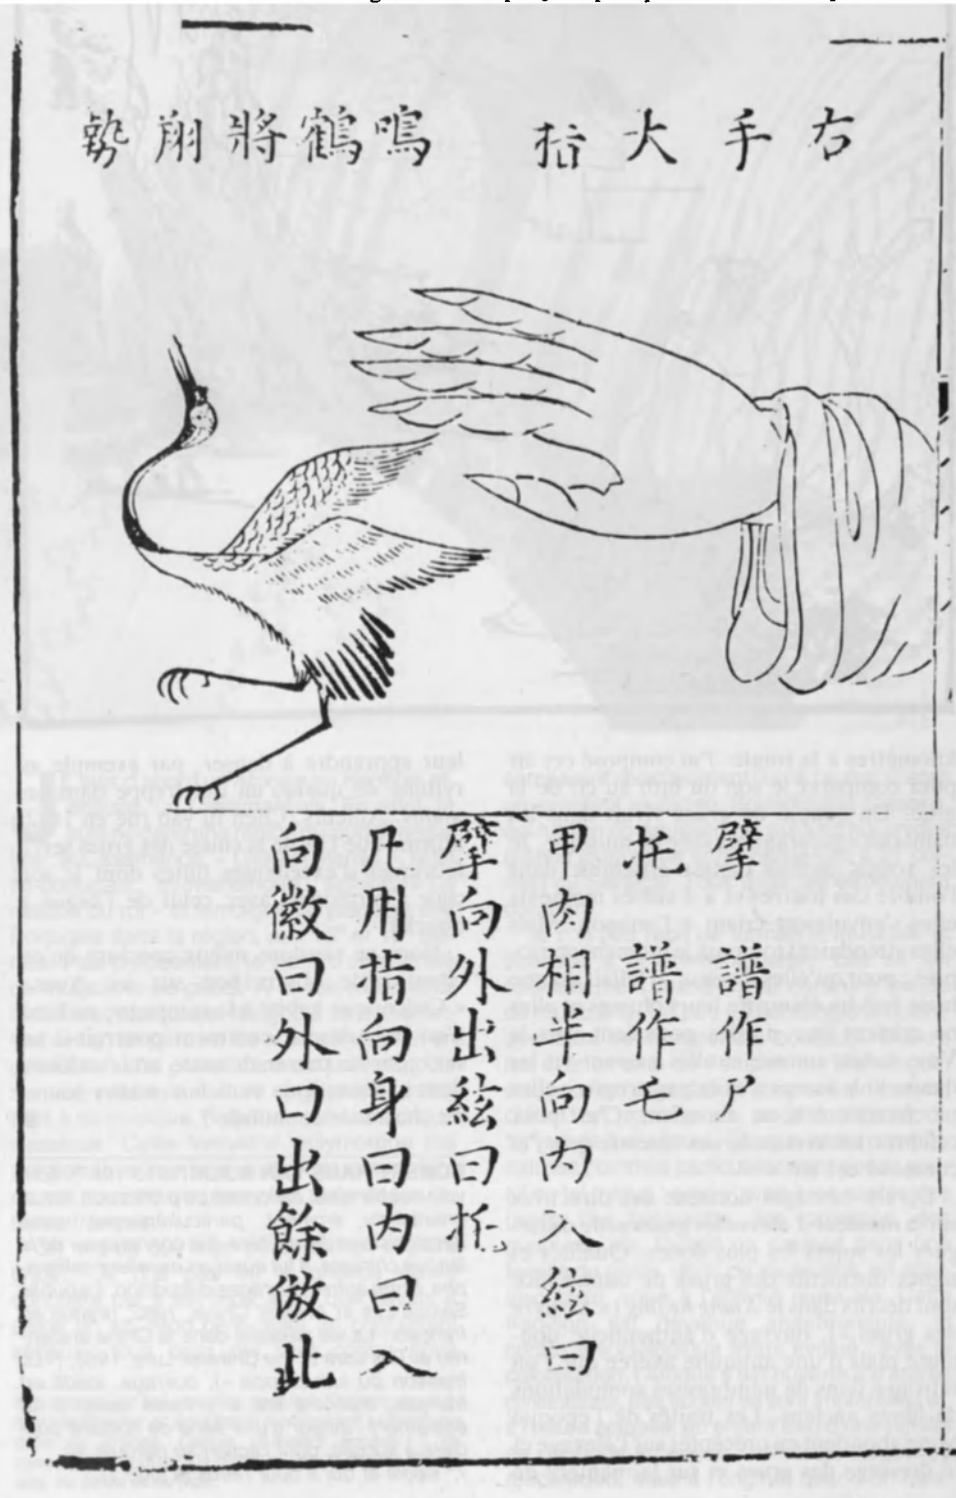 右手大指　鳴鶴將翔勢
擘　譜作尸
托　譜作乇
甲肉相半向内入絃曰
擘向外出絃曰托
凡用指向身曰内曰入
向徽曰外曰出餘倣此